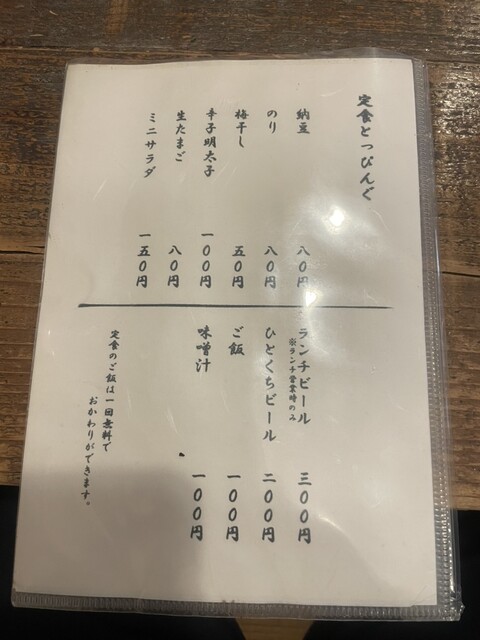 定食とっぴんぐ
納豆 八〇円
のり 八〇円
梅干し 五〇円
辛子明太子 一〇〇円
生たまご 八〇円
ミニサラダ 一五〇円
ランチビール 三〇〇円
※ランチ営業時のみ
ひとくちビール 二〇〇円
ご飯 一〇〇円
味噌汁 一〇〇円
定食のご飯は一回無料で
おかわりができます。